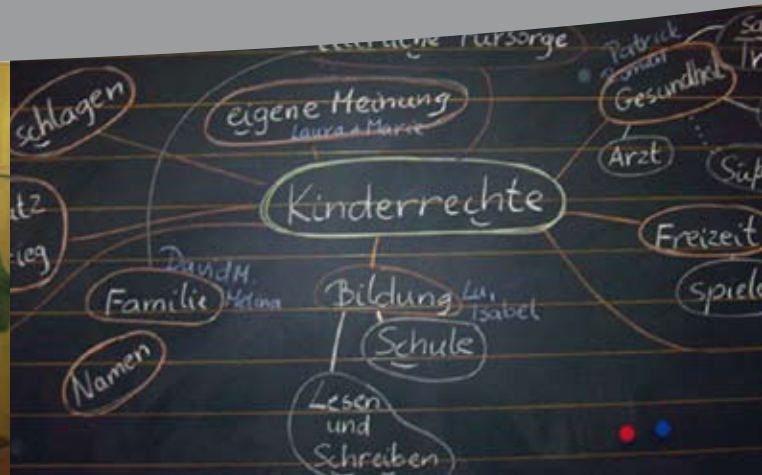 Fürsorge
Patrick
Roman
Gesundheit
schlagen
eigene Meinung
Laura + Marie
Arzt
Kinderrechte
Freizeit
David M.
Melina
Familie
Bildung
Lu,
Isabel
Schule
Namen
Lesen
und
Schreiben